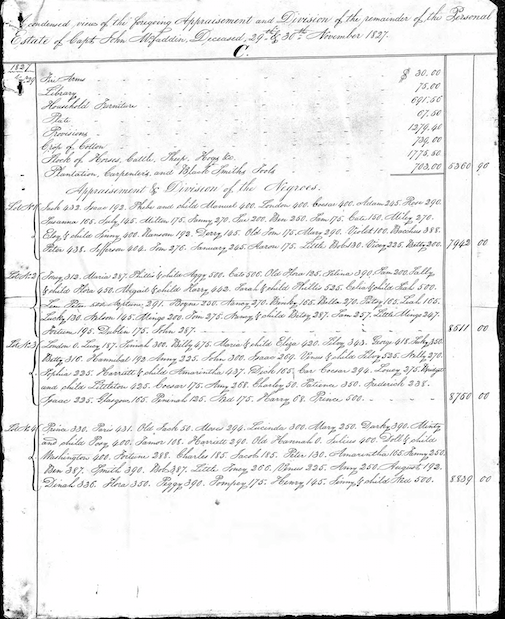 Condensed views of the foregoing Appraisement and Division of the remainder of the Personal
Estate of Capt. John McFaddin, Deceased, 29th & 30th November 1827.
C.
1827
29 Fire Arms $ 30.00
Library 75.00
Household Furniture 691.50
Plate 67.50
Provisions 1279.40
Crop of Cotton 739.00
Stock of Horses, Cattle, Sheep, Hogs &c. 1775.50
Plantation, Carpenters, and Black Smiths Tools 703.00 5360 90
Appraisement & Division of the Negroes.
Lot No. 1 Jack 432. Isaac 192. Phebe and child Manuel 400. London 400. Caesar 400. Adam 245. Rose 290.
Susanna 105. July 145. Milton 175. Fanny 270. Sue 200. Ben 250. Jim 175. Cate 150. Milly 270.
& child 400. Ransom 192. Derry 145. Old Tom 175. Mary 290. Violet 100. 388.
Peter 438. Jefferson 404. Tom 276. January 245. Aaron 175. Little Bob 130. Viney 225. Billy 200. 7942 00
Lot No. 2 312. Maria 287. Phillis & child Aggy 500. Cato 500. Old Flora 125. 390. 200. Sally
& child Flora 450. Abigail & child Harry 442. Sarah & child Phillis 525. & child 500.
Peter 291. 250. Nancy 270. 175. Bella 270. Patsy 165. Leah 165.
Lucky 130. Nelson 145. Mingo 200. Tom 275. & child Betsy 287. Jim 257. Little Mingo 247.
195. Dublin 175. John 287. 8511 00
Lot No. 3 London 0. Lucy 187. 300. Billy 475. Maria & child Eliza 420. 343. George 418. 350
Betty 310. Hannibal 192. Anny 225. John 300. Isaac 209. Venus & child 525. Nelly 270.
Sophia 225. Harriett & child Amarintha 437. Dock 105. Car Caesar 294. Laney 275. Bridget
and child Littleton 425. Caesar 175. Amy 268. Charley 50. Patience 350. Frederick 238.
Isaac 225. Glasgow 165. 125. Ned 175. Harry 08. Prince 500. 8750 00
Lot No. 4 Prince 330. Paris 431. Old Jack 50. Moses 294. Lucinda 300. Mary 250. Darky 390. Minty
and child Posy 400. 108. Harriett 290. Old Hannah 0. Julius 400. Doll & child
Washington 400. Fortune 288. Charles 185. Jacob 185. Peter 130. Amarintha 165. Fanny 250.
Ben 387. Smith 390. Bob 387. Little 200. Venus 225. Amy 250. August 192.
Dinah 336. Flora 350. Peggy 390. Pompey 175. Henry 145. & child Ned 500. 8839 00